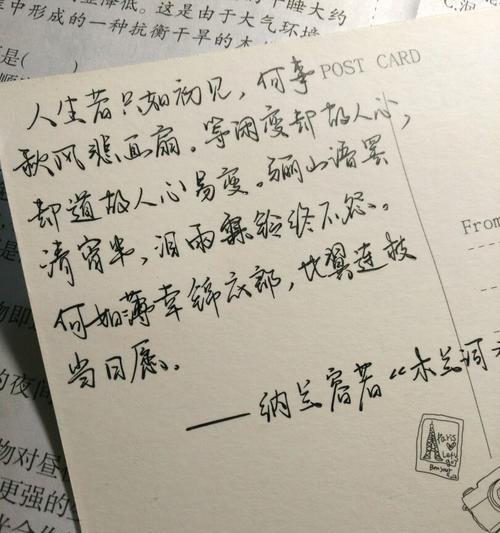 睡大约
显降低。这是由于大气环境
中形成的一种抗衡干旱的
是(　　)
POST CARD
人生若只如初见，何事
秋风悲画扇。等闲变却故人心，
却道故人心易变。骊山语罢
清宵半，泪雨霖铃终不怨。
何如薄幸锦衣郎，比翼连枝
当日愿。
From
——纳兰容若“木兰
Paris
Bonjour
的夜间
物对昼
更强的